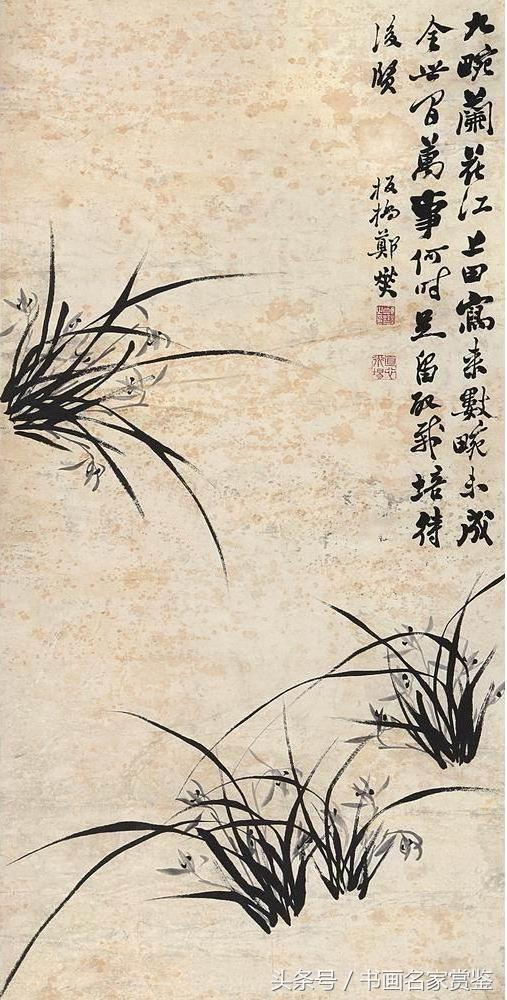 九畹蘭花江上田寫來數畹未成
全世間萬事何時足留取栽培待
後賢
板橋鄭燮
头条号 / 书画名家赏鉴